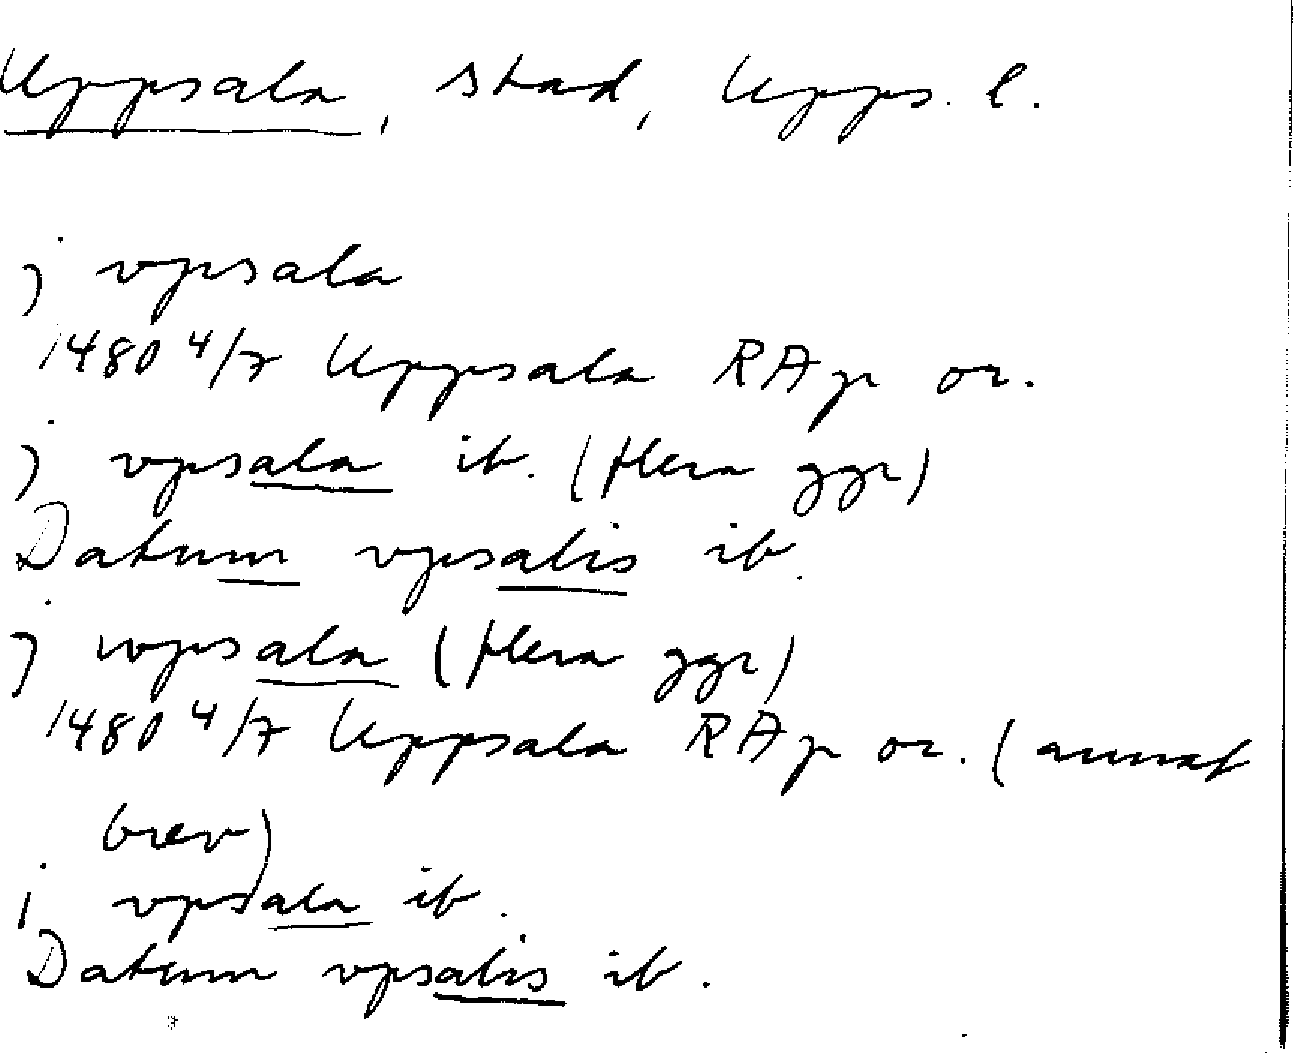 Uppsala, stad, Upps. l.
j vpsala
1480 4/7 Uppsala RAp or.
j vpsala ib. (flera ggr)
Datum vpsalis ib.
j wpsala (flera ggr)
1480 4/7 Uppsala RAp or. (annat
brev)
i vpsala ib.
Datum vpsalis ib.